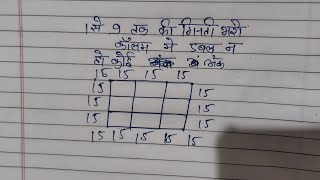 1 से 9 तक की गिनती भरो
कॉलम में डबल न
हो कोई अंक
15 15 15 15
15 15
15 15
15 15
15 15 15 15 15